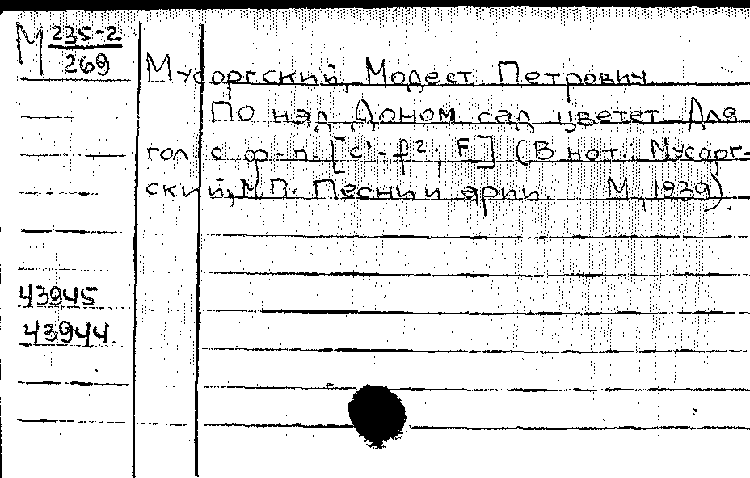 М 235-2
269
Мусоргский, Модест Петрович
По над Доном сад цветет. Для
гол. с ф-п. [c¹-f²; F] (В нот.: Мусорг-
ский, М.П. Песни и арии. М., 1939).
43945
43944